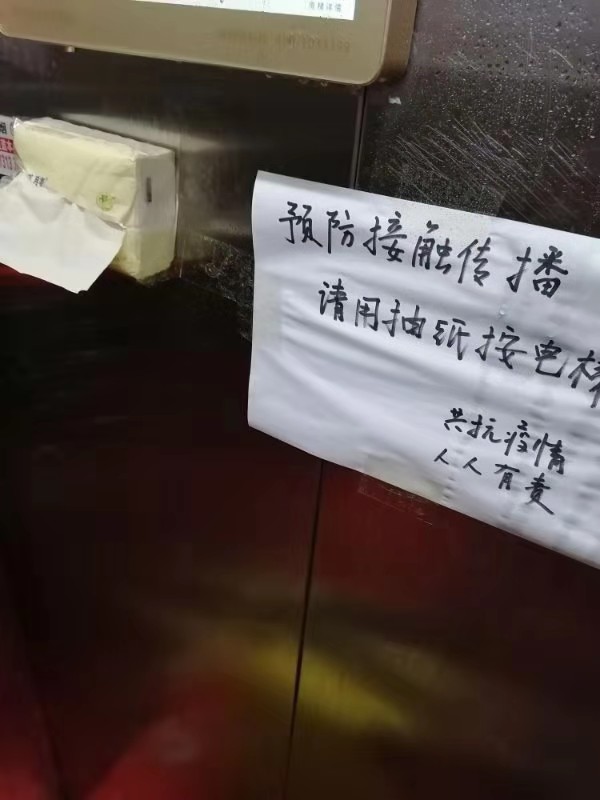 预防接触传播
请用抽纸按电梯
共抗疫情
人人有责